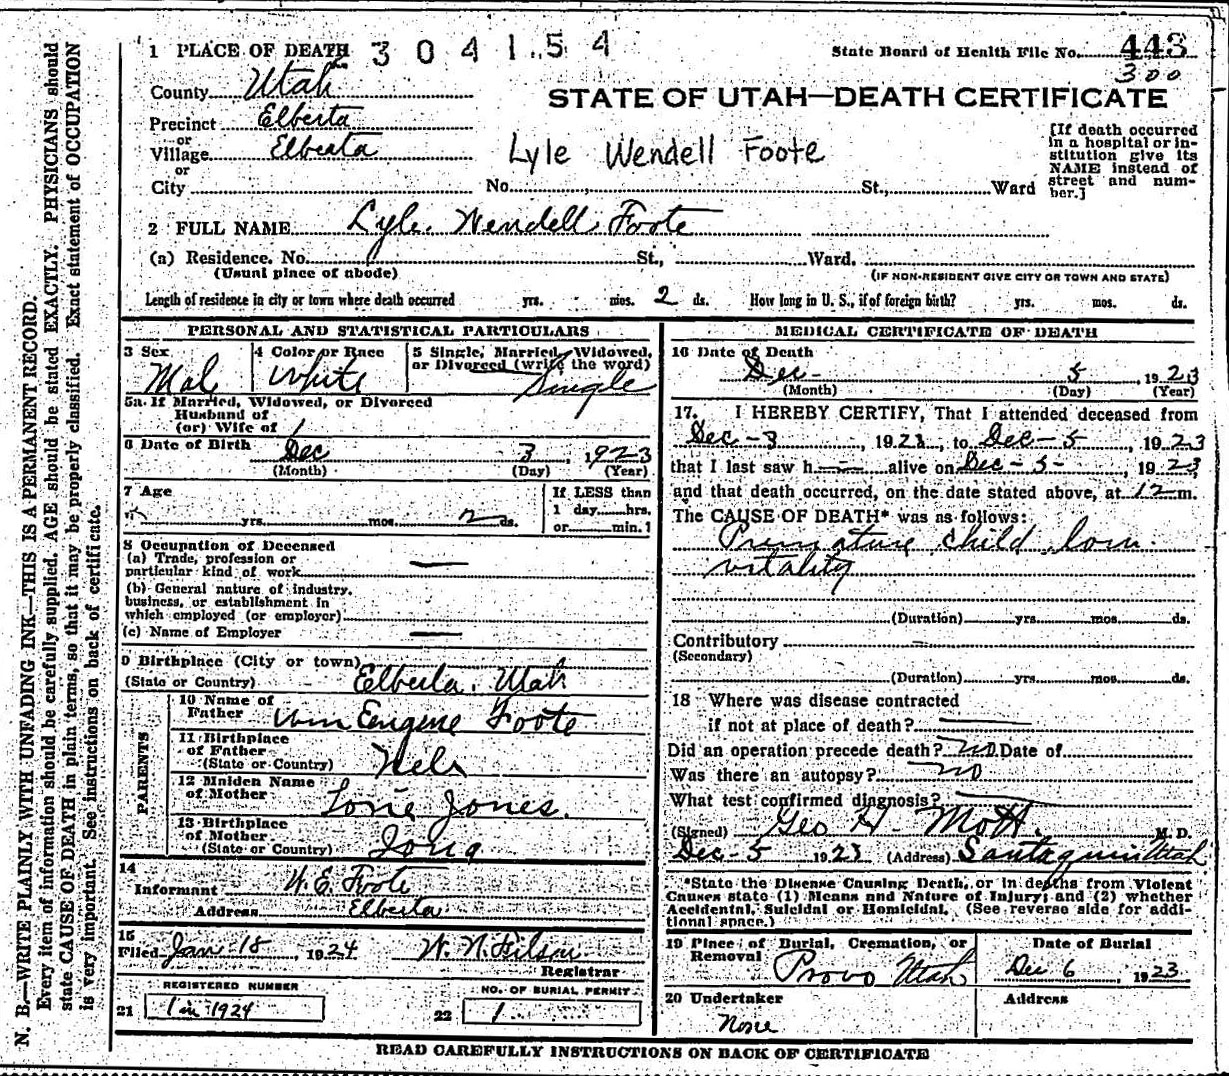 N. B.—WRITE PLAINLY WITH UNFADING INK—THIS IS A PERMANENT RECORD.
Every item of information should be carefully supplied. AGE should be stated EXACTLY. PHYSICIANS should
state CAUSE OF DEATH in plain terms, so that it may be properly classified. Exact statement of OCCUPATION
is very important. See instructions on back of certificate.
1 PLACE OF DEATH 304154
State Board of Health File No. 443
300
County Utah
STATE OF UTAH—DEATH CERTIFICATE
Precinct Elberta
or
Village Elberta
or
Lyle Wendell Foote
[If death occurred
in a hospital or in-
stitution give its
NAME instead of
street and num-
ber.]
City No. St., Ward
2 FULL NAME Lyle Wendell Foote
(a) Residence. No. St., Ward.
(Usual place of abode) (IF NON-RESIDENT GIVE CITY OR TOWN AND STATE)
Length of residence in city or town where death occurred yrs. mos. 2 ds. How long in U. S., if of foreign birth? yrs. mos. ds.
PERSONAL AND STATISTICAL PARTICULARS
3 Sex 4 Color or Race 5 Single, Married, Widowed,
or Divorced (write the word)
Male White Single
5a. If Married, Widowed, or Divorced
Husband of
(or) Wife of
6 Date of Birth Dec 3, 1923
(Month) (Day) (Year)
7 Age If LESS than
1 day hrs.
yrs. mos. 2 ds. or min. ?
8 Occupation of Deceased
(a) Trade, profession or
particular kind of work —
(b) General nature of industry,
business, or establishment in
which employed (or employer)
(c) Name of Employer —
9 Birthplace (City or town)
(State or Country) Elberta, Utah
PARENTS
10 Name of
Father Wm Eugene Foote
11 Birthplace
of Father
(State or Country) Nebr
12 Maiden Name
of Mother Lorie Jones.
13 Birthplace
of Mother
(State or Country) Iowa
14
Informant W. E. Foote
Address Elberta
15
Filed Jan-18, 1924 W. N.
Registrar
REGISTERED NUMBER
21 1 in 1924
NO. OF BURIAL PERMIT
22 1
MEDICAL CERTIFICATE OF DEATH
16 Date of Death
Dec- 5, 1923
(Month) (Day) (Year)
17. I HEREBY CERTIFY, That I attended deceased from
Dec-3, 1923, to Dec-5, 1923
that I last saw h— alive on Dec-5-, 1923,
and that death occurred, on the date stated above, at 12 m.
The CAUSE OF DEATH* was as follows:
Premature child low
vitality
(Duration) yrs. mos. ds.
Contributory
(Secondary)
(Duration) yrs. mos. ds.
18 Where was disease contracted
if not at place of death? —
Did an operation precede death? no. Date of
Was there an autopsy? no
What test confirmed diagnosis? —
(Signed) Geo H. Mott. M. D.
Dec-5 1923 (Address) Santaquin Utah
*State the Disease Causing Death, or in deaths from Violent
Causes state (1) Means and Nature of Injury; and (2) whether
Accidental, Suicidal or Homicidal. (See reverse side for addi-
tional space.)
19 Place of Burial, Cremation, or
Removal Provo Utah
Date of Burial
Dec 6 1923
20 Undertaker
None
Address
READ CAREFULLY INSTRUCTIONS ON BACK OF CERTIFICATE